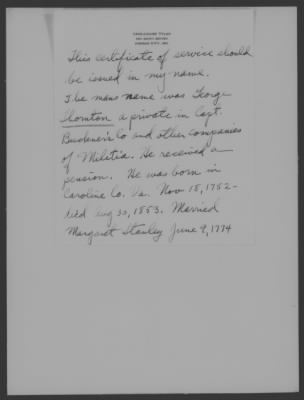 This certificate of service should
be issued in my name.
The mans name was George
Thomton a private in Capt.
Co and other companies
of Militia. He received a
pension. He was born in
Caroline Co. Va. Nov 15, 1752-
died Aug 30, 1853. Married
Margaret Stanley June 9, 1774